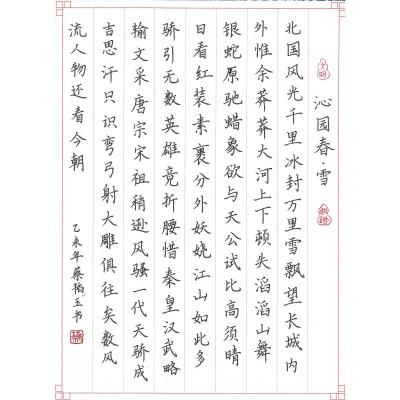 沁园春·雪
北国风光千里冰封万里雪飘望长城内
外惟余莽莽大河上下顿失滔滔山舞
银蛇原驰蜡象欲与天公试比高须晴
日看红装素裹分外妖娆江山如此多
骄引无数英雄竞折腰惜秦皇汉武略
输文采唐宗宋祖稍逊风骚一代天骄成
吉思汗只识弯弓射大雕俱往矣数风
流人物还看今朝
乙未年蔡玉书